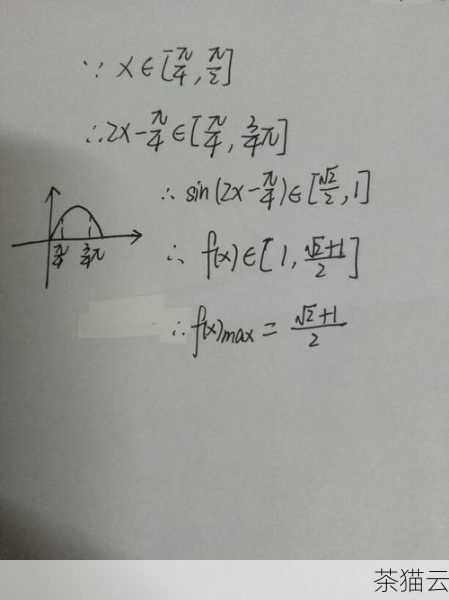 ∵ x∈[π/4, π/2]
∴ 2x-π/4∈[π/4, 3/4π]
∴ sin(2x-π/4)∈[√2/2, 1]
π/4 3/4π
∴ f(x)∈[1, (√2+1)/2]
∴ f(x)max = (√2+1)/2
茶猫云